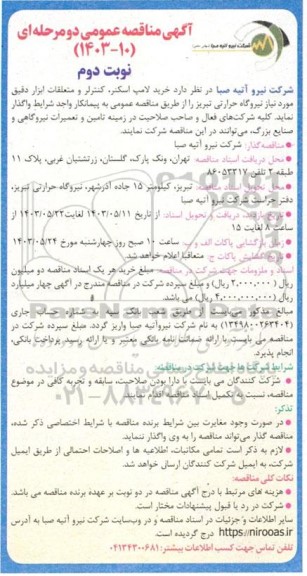 شرکت نیرو آتیه صبا
آگهی مناقصه عمومی دو مرحله ای
(۱۴۰۳-۱۰)
نوبت دوم
شرکت نیرو آتیه صبا در نظر دارد خرید لامپ اسکنر، کنترلر و متعلقات ابزار دقیق
مورد نیاز نیروگاه حرارتی تبریز را از طریق مناقصه عمومی به پیمانکار واجد شرایط واگذار
نماید. کلیه شرکت‌های فعال و صاحب صلاحیت در زمینه تامین و تعمیرات نیروگاهی و
صنایع بزرگ، می‌توانند در این مناقصه شرکت نمایند.
مناقصه گذار: شرکت نیرو آتیه صبا
محل دریافت اسناد مناقصه: تهران، ونک پارک، گلستان، زرتشتیان غربی، پلاک ۱۱
طبقه ۲ تلفن ۸۶۰۵۳۳۱۷
محل تحویل اسناد مناقصه: تبریز، کیلومتر ۱۵ جاده آذرشهر، نیروگاه حرارتی تبریز،
دفتر حراست شرکت نیرو آتیه صبا
دریافت و تحویل اسناد: از تاریخ ۱۴۰۳/۰۵/۱۱ لغایت ۱۴۰۳/۰۵/۲۲ از
ساعت ۸ لغایت ۱۵
زمان بازگشایی پاکات الف و ب: ساعت ۱۰ صبح روز چهارشنبه مورخ ۱۴۰۳/۰۵/۲۴
گشایش پاکات ج: متعاقبا اعلام خواهد شد.
اسناد و ملزومات جهت شرکت در مناقصه: مبلغ خرید هر یک اسناد مناقصه دو میلیون
ریال (۲,۰۰۰,۰۰۰ ریال) و مبلغ سپرده شرکت در مناقصه مندرج در آگهی چهار میلیارد
ریال (۴,۰۰۰,۰۰۰,۰۰۰ ریال) می باشد.
مبالغ مذکور می بایست از طریق شعب بانک سپه به شماره حساب جاری
(۱۳۴۹۸۰۰۲۶۳۴۰۴) به نام شرکت نیرو آتیه صبا واریز گردد. مبلغ سپرده شرکت در
مناقصه می بایست با ارائه ضمانت نامه بانکی معتبر و یا ارایه رسید پرداخت بانکی،
انجام پذیرد.
شرایط شرکت ها جهت شرکت در مناقصه:
شرکت کنندگان می بایست با دارا بودن صلاحیت، سابقه و تجربه کافی در موضوع
مناقصه، نسبت به تکمیل اسناد مناقصه اقدام نمایند.
تذکر:
در صورت وجود مغایرت بین شرایط برنده مناقصه با شرایط اختصاصی ذکر شده،
مناقصه گذار می‌تواند مناقصه را به وی واگذار ننماید.
لازم به ذکر است تمامی مکاتبات، اطلاعیه ها و اصلاحات احتمالی از طریق ایمیل
شرکت، به ایمیل شرکت کنندگان ارسال خواهد شد.
نکات کلی مناقصه:
هزینه های مرتبط با درج آگهی مناقصه در دو نوبت بر عهده برنده مناقصه می باشد.
شرکت در رد یا قبول پیشنهادات مختار است.
سایر اطلاعات و جزئیات در اسناد مناقصه و در وب‌سایت شرکت نیرو آتیه صبا به آدرس
https://nirooas.ir درج گردیده است.
تلفن تماس جهت کسب اطلاعات بیشتر: ۰۴۱۳۴۳۰۰۶۸۱
ParsNamadData
۰۲۱-۸۸۳۴۹۶۷۰-۵